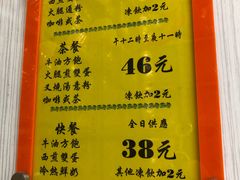 火腿通粉
咖啡或茶
凍飲加2元
茶餐
午十二時至夜十一時
牛油方飽
西煎雙蛋
叉燒湯意粉
咖啡或茶
46元
凍飲加2元
快餐
全日供應
牛油方飽
西煎雙蛋
冷熱鮮奶
38元
其他凍飲加2元